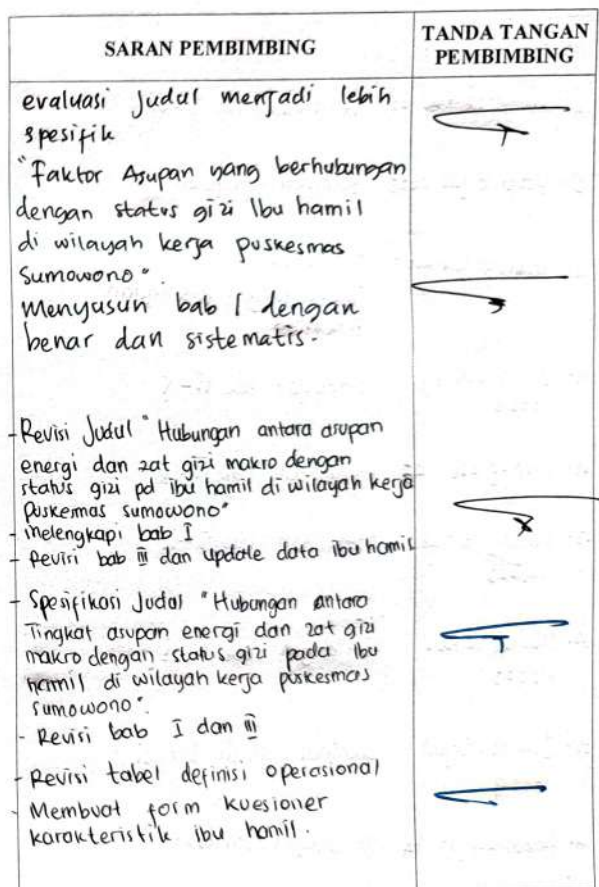 SARAN PEMBIMBING
TANDA TANGAN
PEMBIMBING
evaluasi Judul menjadi lebih
spesifik
"Faktor Asupan yang berhubungan
dengan status gizi Ibu hamil
di wilayah kerja puskesmas
Sumowono".
Menyusun bab I dengan
benar dan sistematis.
- Revisi Judul "Hubungan antara asupan
energi dan zat gizi makro dengan
status gizi pd ibu hamil di wilayah kerja
Puskesmas sumowono"
- Melengkapi bab I
- Revisi bab III dan update data ibu hamil
- Spesifikasi Judul "Hubungan antara
Tingkat asupan energi dan zat gizi
makro dengan status gizi pada Ibu
hamil di wilayah kerja puskesmas
sumowono".
- Revisi bab I dan III
- Revisi tabel definisi operasional
- Membuat form kuesioner
karakteristik ibu hamil.